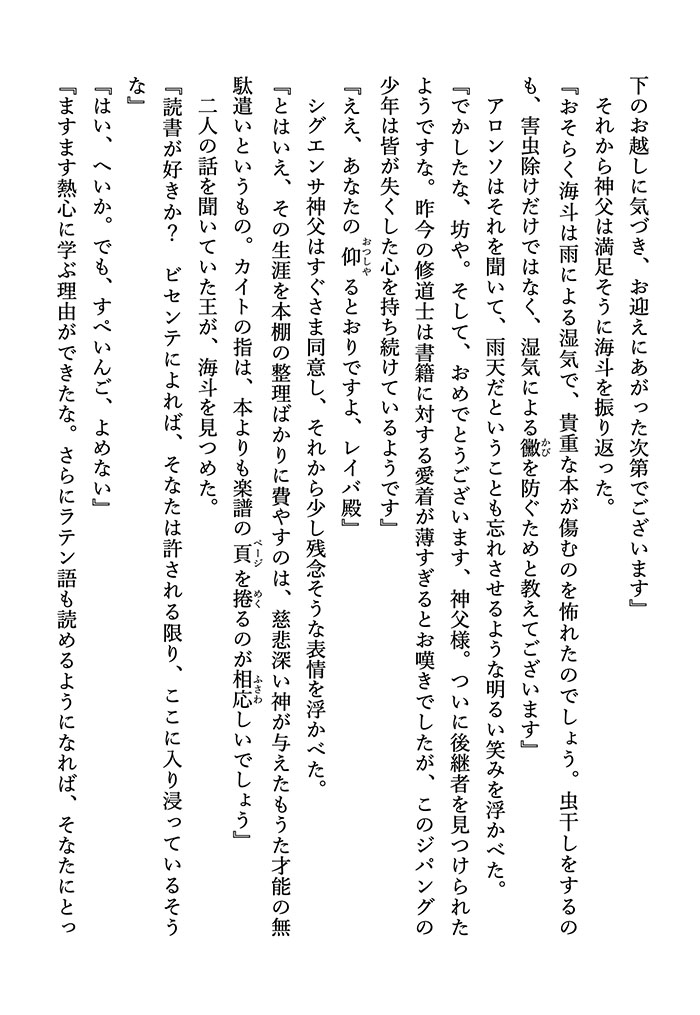 下のお越しに気づき、お迎えにあがった次第でございます』
それから神父は満足そうに海斗を振り返った。
『おそらく海斗は雨による湿気で、貴重な本が傷むのを怖れたのでしょう。虫干しをするの
も、害虫除けだけではなく、湿気による黴を防ぐためと教えてございます』
アロンソはそれを聞いて、雨天だということも忘れさせるような明るい笑みを浮かべた。
『でかしたな、坊や。そして、おめでとうございます、神父様。ついに後継者を見つけられた
ようですな。昨今の修道士は書籍に対する愛着が薄すぎるとお嘆きでしたが、このジパングの
少年は皆が失くした心を持ち続けているようです』
『ええ、あなたの仰るとおりですよ、レイバ殿』
シグエンサ神父はすぐさま同意し、それから少し残念そうな表情を浮かべた。
『とはいえ、その生涯を本棚の整理ばかりに費やすのは、慈悲深い神が与えたもうた才能の無
駄遣いというもの。カイトの指は、本よりも楽譜の頁を捲るのが相応しいでしょう』
二人の話を聞いていた王が、海斗を見つめた。
『読書が好きか？　ビセンテによれば、そなたは許される限り、ここに入り浸っているそう
な』
『はい、へいか。でも、すぺいんご、よめない』
『ますます熱心に学ぶ理由ができたな。さらにラテン語も読めるようになれば、そなたにとっ